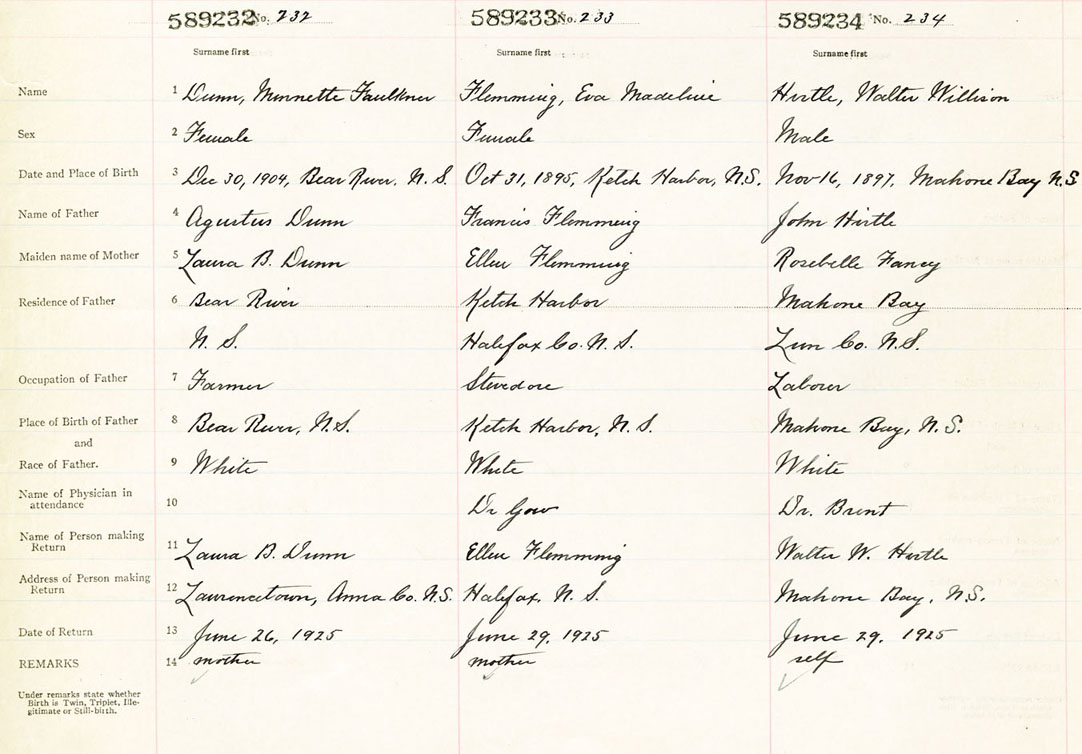 589232 No. 232 589233 No. 233 589234 No. 234
Surname first Surname first Surname first
Name 1 Dunn, Minnette Faulkner Flemming, Eva Madeline Hirtle, Walter Willison
Sex 2 Female Female Male
Date and Place of Birth 3 Dec 30, 1904, Bear River. N. S. Oct 31, 1895, Ketch Harbor, N.S. Nov 16, 1897, Mahone Bay N.S
Name of Father 4 Agustus Dunn Francis Flemming John Hirtle
Maiden name of Mother 5 Laura B. Dunn Ellen Flemming Rosebelle Fancy
Residence of Father 6 Bear River Ketch Harbor Mahone Bay
N. S. Halifax Co. N. S. Lun Co. N.S.
Occupation of Father 7 Farmer Stevedore Labour
Place of Birth of Father 8 Bear River, N.S. Ketch Harbor, N. S. Mahone Bay, N.S.
and
Race of Father. 9 White White White
Name of Physician in
attendance 10 Dr Gow Dr. Brent
Name of Person making
Return 11 Laura B. Dunn Ellen Flemming Walter W. Hirtle
Address of Person making
Return 12 Laurencetown, Anna Co. N.S. Halifax, N. S. Mahone Bay, N.S.
Date of Return 13 June 26, 1925 June 29, 1925 June 29, 1925
REMARKS 14 mother mother self
Under remarks state whether
Birth is Twin, Triplet, Ille-
gitimate or Still-birth.